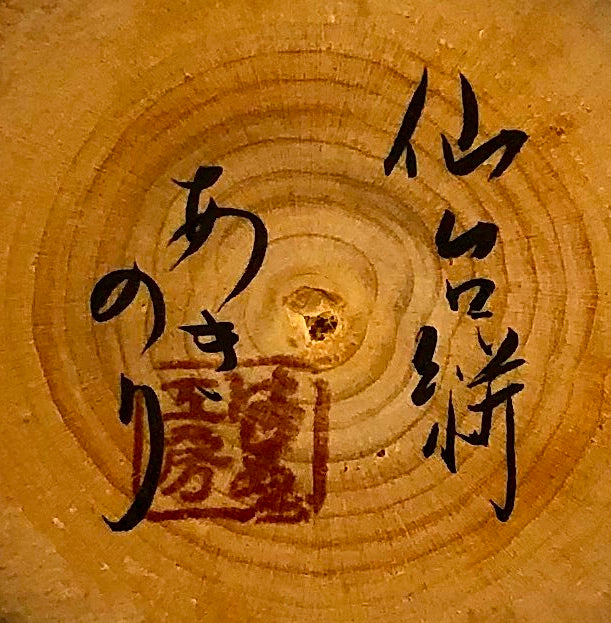 仙台絣
あき
のり
工房